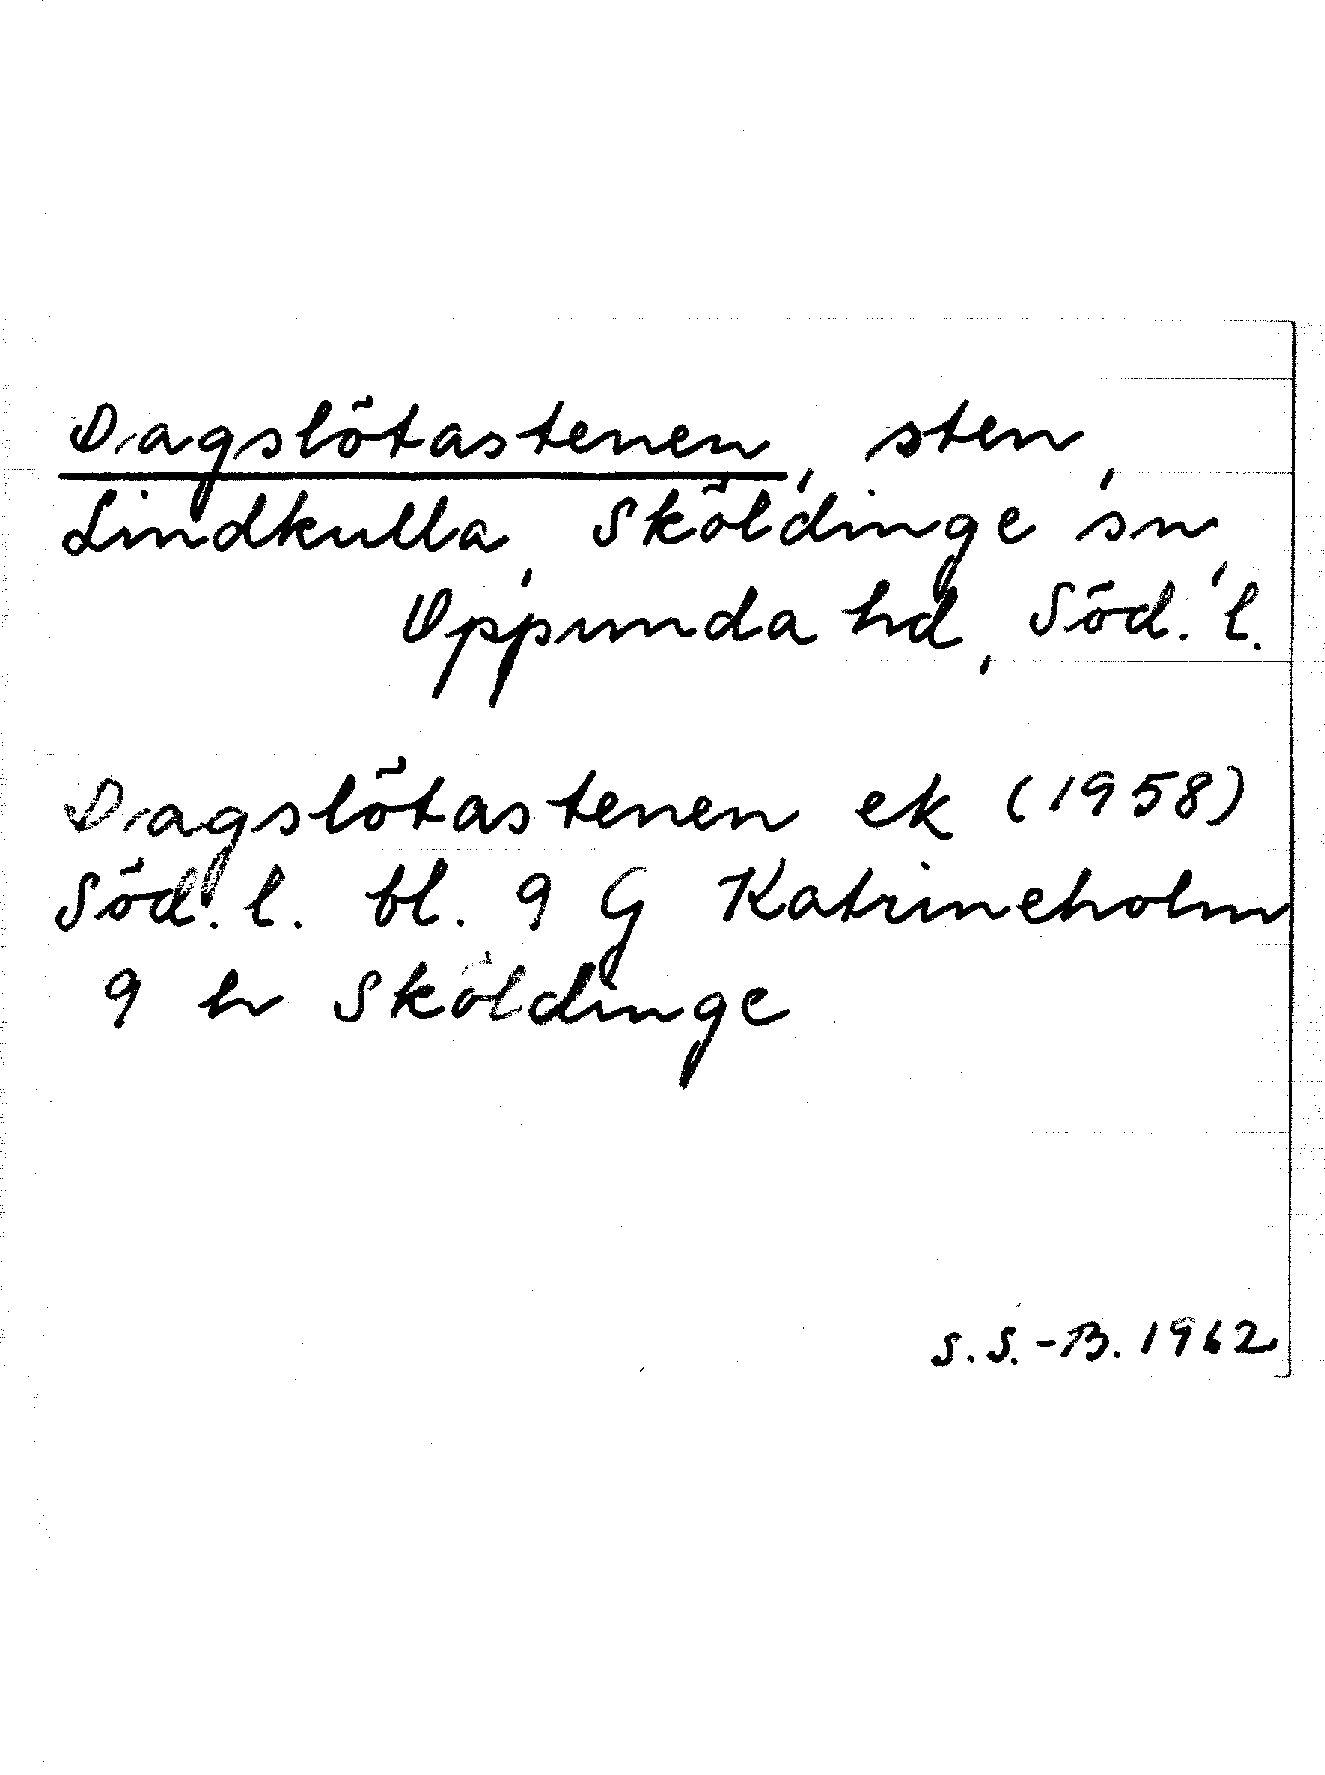 Dagslötastenen, sten,
Lindkulla, Sköldinge sn,
Oppunda hd, Söd. l.
Dagslötastenen ek (1958)
Söd. l. bl. 9 G Katrineholm
9 h Sköldinge
S.S.-B. 1962